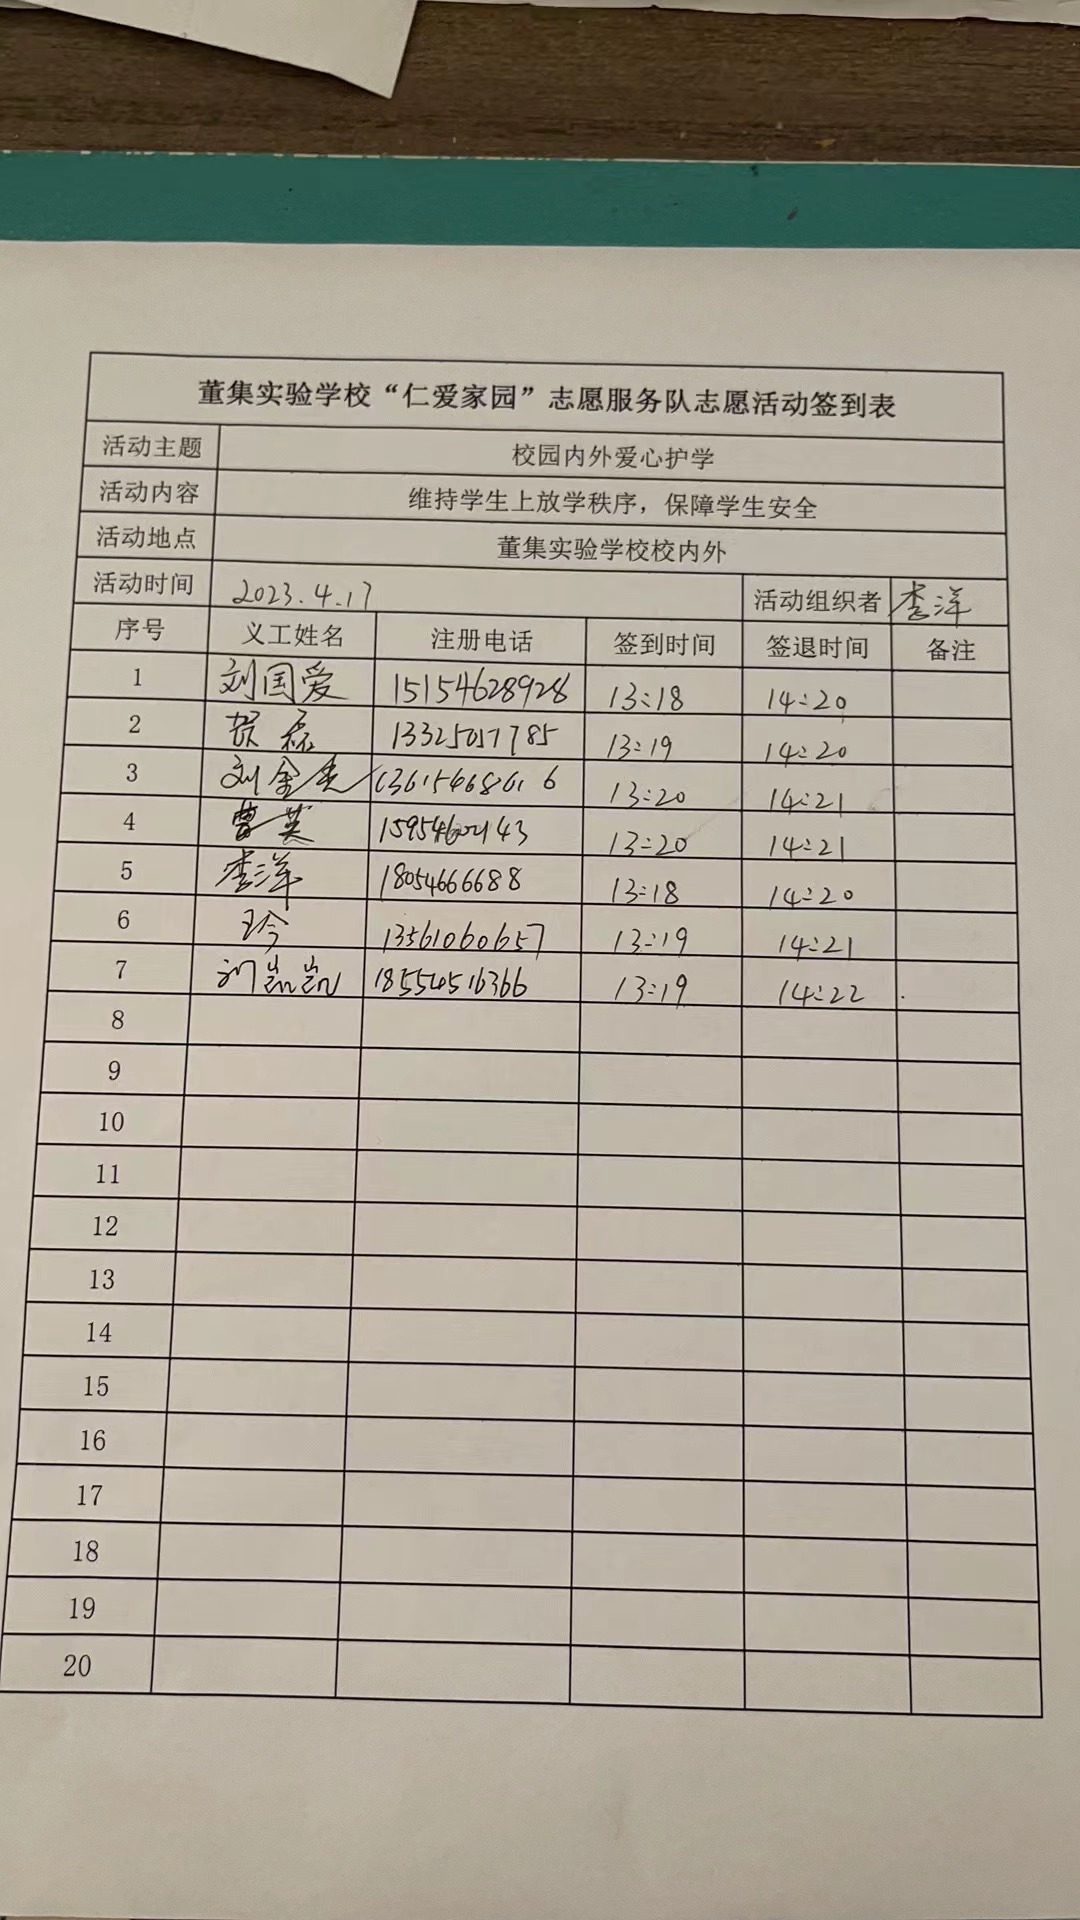 董集实验学校“仁爱家园”志愿服务队志愿活动签到表
活动主题 校园内外爱心护学
活动内容 维持学生上放学秩序，保障学生安全
活动地点 董集实验学校校内外
活动时间 2023.4.17 活动组织者 李洋
序号 义工姓名 注册电话 签到时间 签退时间 备注
1 刘国爱 15154628928 13:18 14:20
2 贺磊 13325017785 13:19 14:20
3 刘金 13615468616 13:20 14:21
4 曹英 13:20 14:21
5 李洋 18054666688 13:18 14:20
6 13561060657 13:19 14:21
7 刘凯凯 18554516366 13:19 14:22
8
9
10
11
12
13
14
15
16
17
18
19
20